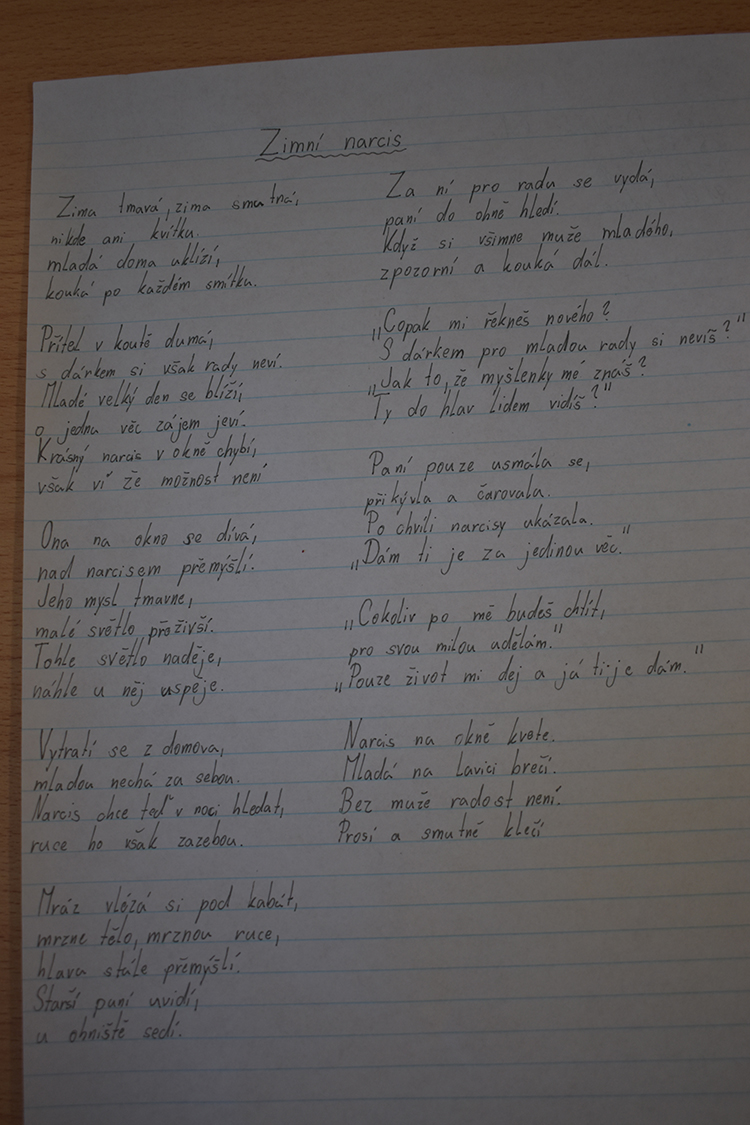 Zimní narcis
Zima tmavá, zima smutná,
nikde ani kvítku.
mladá doma uklízí,
kouká po každém smítku.
Přítel v koutě dumá,
s dárkem si však rady neví.
Mladé velký den se blíží,
o jednu věc zájem jeví.
Krásný narcis v okně chybí,
však ví že možnost není
Ona na okno se dívá,
nad narcisem přemýšlí.
Jeho mysl tmavne,
malé světlo proživší.
Tohle světlo naděje,
náhle u něj uspěje.
Vytratí se z domova,
mladou nechá za sebou.
Narcis chce teď v noci hledat,
ruce ho však zazebou.
Mráz vlézá si pod kabát,
mrzne tělo, mrznou ruce,
hlava stále přemýšlí.
Starší paní uvidí,
u ohniště sedí.
Za ní pro radu se vydá,
paní do ohně hledí.
Když si všimne muže mladého,
zpozorní a kouká dál.
„Copak mi řekneš nového?
S dárkem pro mladou rady si nevíš?"
„Jak to, že myšlenky mé znáš?
Ty do hlav lidem vidíš?"
Paní pouze usmála se,
přikývla a čarovala.
Po chvíli narcisy ukázala.
„Dám ti je za jedinou věc."
„Cokoliv po mě budeš chtít,
pro svou milou udělám."
„Pouze život mi dej a já ti je dám."
Narcis na okně kvete.
Mladá na lavici brečí.
Bez muže radost není.
Prosí a smutně klečí